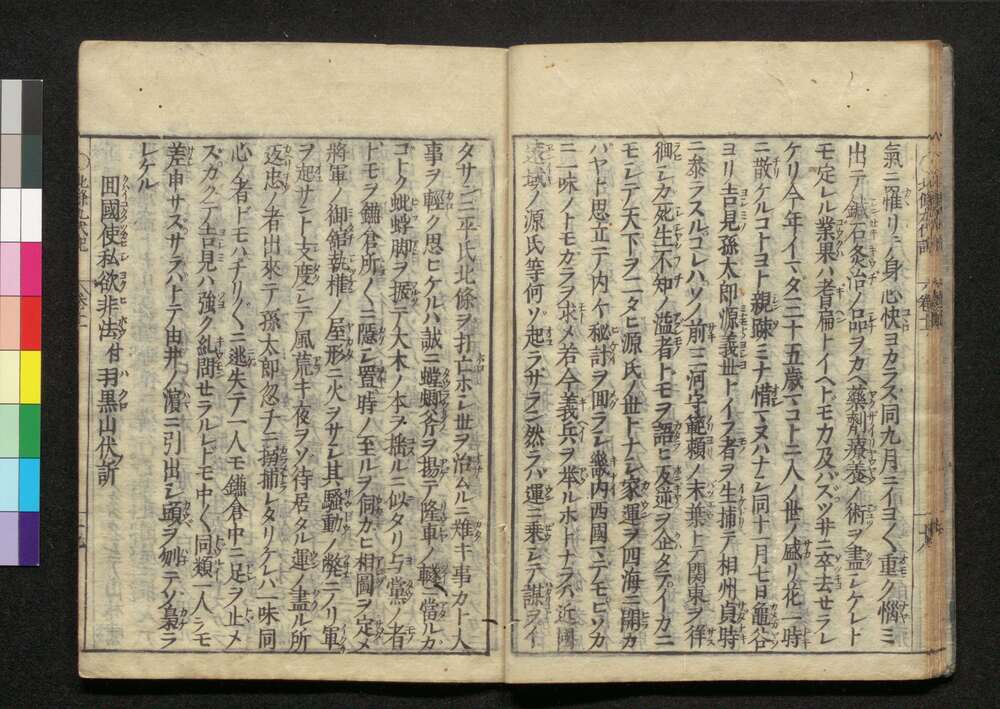 氣ニ罹リ其身心快ヨカラス同九月ニイヨ〱重ク惱ミ
出テ鍼石灸治ノ品ヲカヘ藥劑療養ノ術ヲ盡シケレト
モ定レル業果ハ耆扁トイヘトモ力及バズツヰニ卒去セラレ
ケリ今年イマダ三十五歳マコトニ人ノ世ノ盛リ花一時
ニ散ケルコトヨト親疎ミナ惜マヌハナシ同十一月七日龜谷
ヨリ吉見孫太郎源義世トイフ者ヲ生捕テ相州貞時
ニ泰ラスルコレハソノ前三河守範頼ノ末葉トテ関東ヲ徘
徊シカ死生不知ノ溢者トモヲ語ヒ反逆ヲ企タテイカニ
モシテ天下ヲ二タヒ源氏ノ世トナシ家運ヲ四海ニ開カ
ハヤト思立テ内々秘計ヲ囬ラシ畿内西國マデモヒソカ
ニ一味ノトモカラヲ求メ若今義兵ヲ挙ルホトナラハ近國
遠域ノ源氏等何ソ起ラザラン然ラハ運ニ乗シテ謀ヲイ
タサンニ平氏北條ヲ打亡ホシ世ヲ治ムルニ難キ事カト大
事ヲ輕ク思ヒケルハ誠ニ蟷螂斧ヲ揚テ隆車ノ轍ニ當ルカ
コトク蚍蜉脚ヲ振テ大木ノ本ヲ揺ルニ似タリ与黨ノ者
トモヲ鎌倉所〱ニ隠シ置時ノ至ルヲ伺カヒ相圖ヲ定メ
將軍ノ御館執權ノ屋形ニ火ヲサシ其騒動ノ弊ニノリ軍
ヲ起サント支度シテ風荒キ夜ヲソ待居タル運ノ盡ル所
返忠ノ者出來テ孫太郎忽チニ搦捕レタリケレハ一味同
心ノ者ドモハチリ〱ニ逃失テ一人モ鎌倉中ニ足ヲ止メ
スカクテ吉見ハ強ク糺問セラルレドモ中〱同類一人ラモ
差申サズサラバトテ由井ノ濵ニ引出シ頭ヲ刎テソ梟ラ
レケル
囬國使私欲非法 付 羽黒山代訢